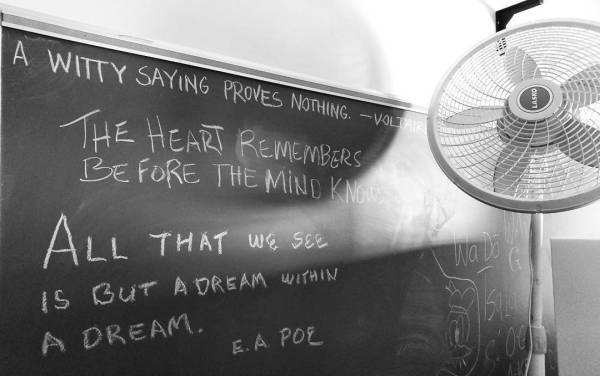 A WITTY SAYING PROVES NOTHING. —VOLTAIRE
THE HEART REMEMBERS
BEFORE THE MIND KNOWS
ALL THAT WE SEE
IS BUT A DREAM WITHIN
A DREAM.
E.A. POE
LASKO
Wa Do